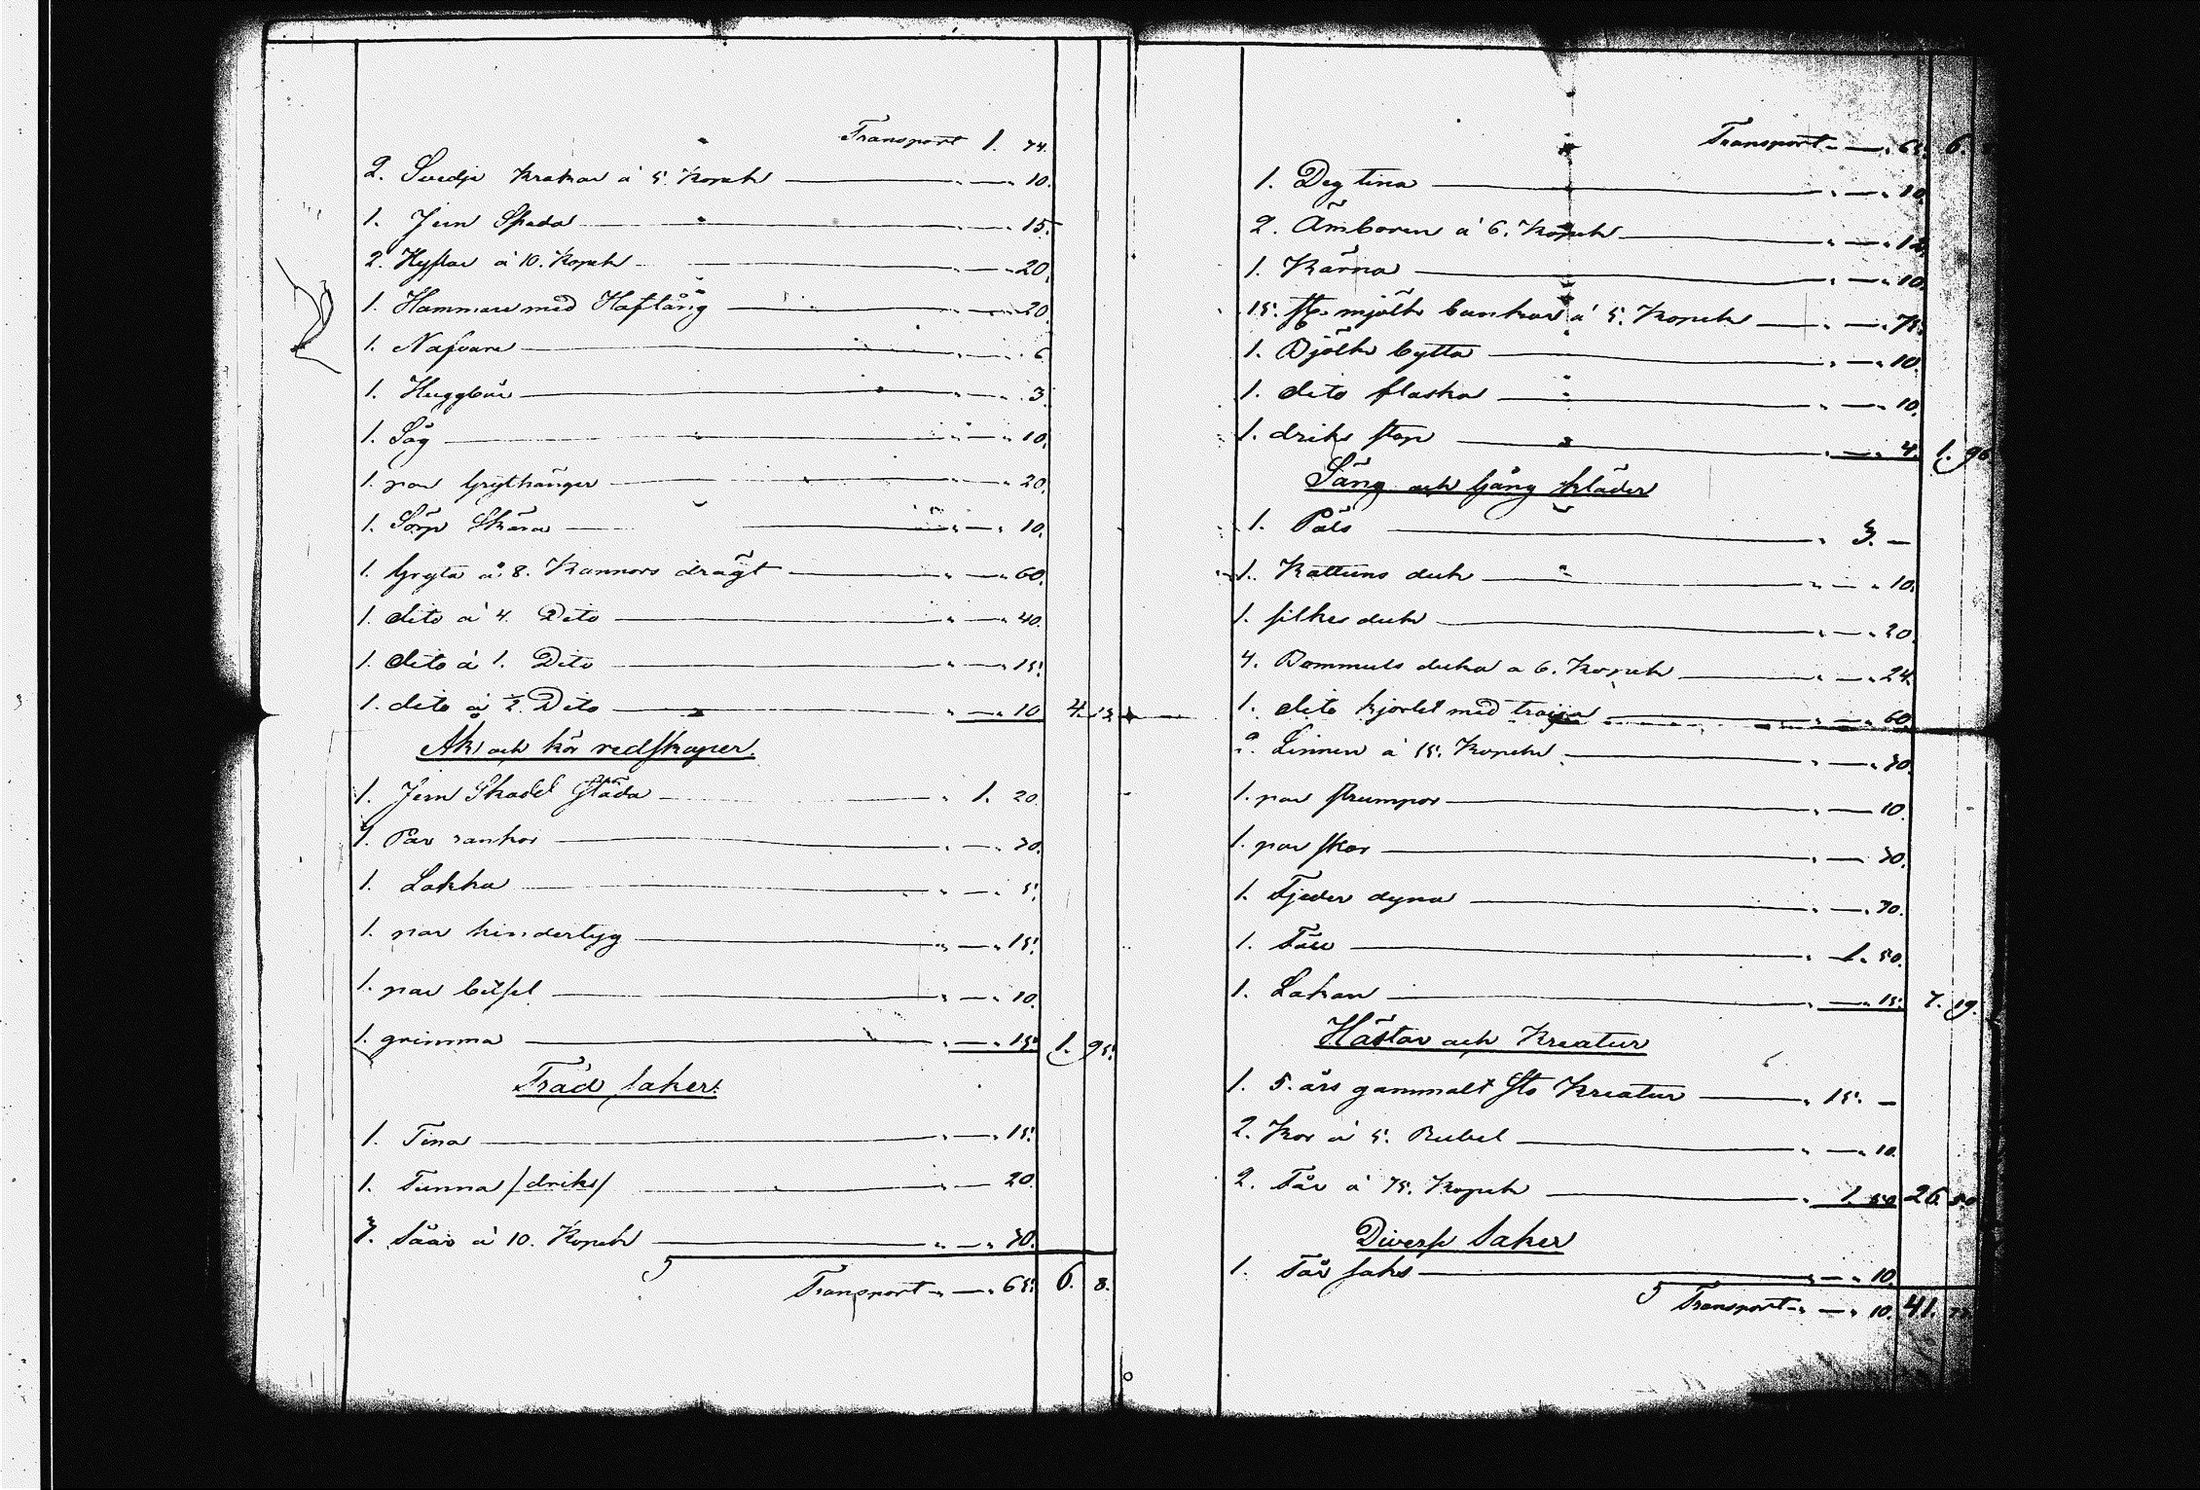 Transport 1. 74.
2. Svedje Krakar á 5. Kopek — 10.
1. Jern Spada — 15.
2. Hyflar á 10. Kopek — 20.
1. Hammare med Haftång — 20.
1. Nafvare — 6
1. Huggbår — 3
1. Såg — 10.
1. par Grythänger — 20.
1. Sörp Skära — 10.
1. Gryta á 8. Kannors drägt — 60.
1. dito á 4. Dito — 40.
1. dito á 1. Dito — 15.
1. dito á ½ Dito — 10 4. 13
Åk och kör redskaper.
1. Jern Skodd Släda — 1. 20.
1. Par rankor — 30.
1. Lokka — 5.
1. par hindertyg — 15.
1. par betsel — 10.
1. grimma — 15. 1. 95.
Träd saker.
1. Tina — 15.
1. Tunna /driks/ — 20.
3. Såar á 10. Kopek — 30.
Transport — 65. 6. 8.
Transport — 65. 6.
1. Deg tina — 10.
2. Ämbaren á 6. Kopek — 12.
1. Kärna — 10.
15. st. mjölk bunkar á 5. Kopek — 75.
1. Mjölk bytta — 10.
1. dito flaska — 10.
1. driks stop — 4. 1. 96
Säng och Gång kläder
1. Päls — 3. —
1. Kattuns duk — 10.
1. silkes duk — 20.
4. Bommuls dukar a 6. Kopek — 24.
1. dito kjortel med tröija — 60.
2. Linnen á 15. Kopek — 30.
1. par strumpor — 10.
1. par skor — 30.
1. Fjeder dyna — 70.
1. Fäll — 1. 50.
1. Lakan — 15. 7. 19.
Hästar och Kreatur
1. 5. års gammalt Sto Kreatur — 15. —
2. Kor á 5. Rubel — 10.
2. Får á 75. Kopek — 1. 50 26. 50
Diverse saker
1. Får saks — 10.
Transport — 10. 41. 73